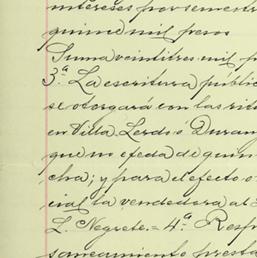 intereses por semestre
quince mil pesos
Suma veintitres mil p
3.ª La escritura públic
se otorgará con las rit
en Villa Lerdo ó Duran
que no exceda de quin
cha; y para el efecto o
cial la vendedora al S
L. Negrete. = 4.ª Resp
saneamiento presta